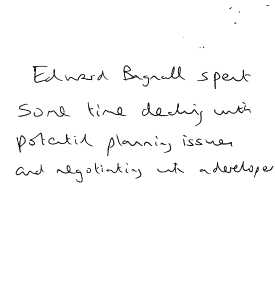 Edward Bagnall spent
some time dealing with
potential planning issues
and negotiating with a develope